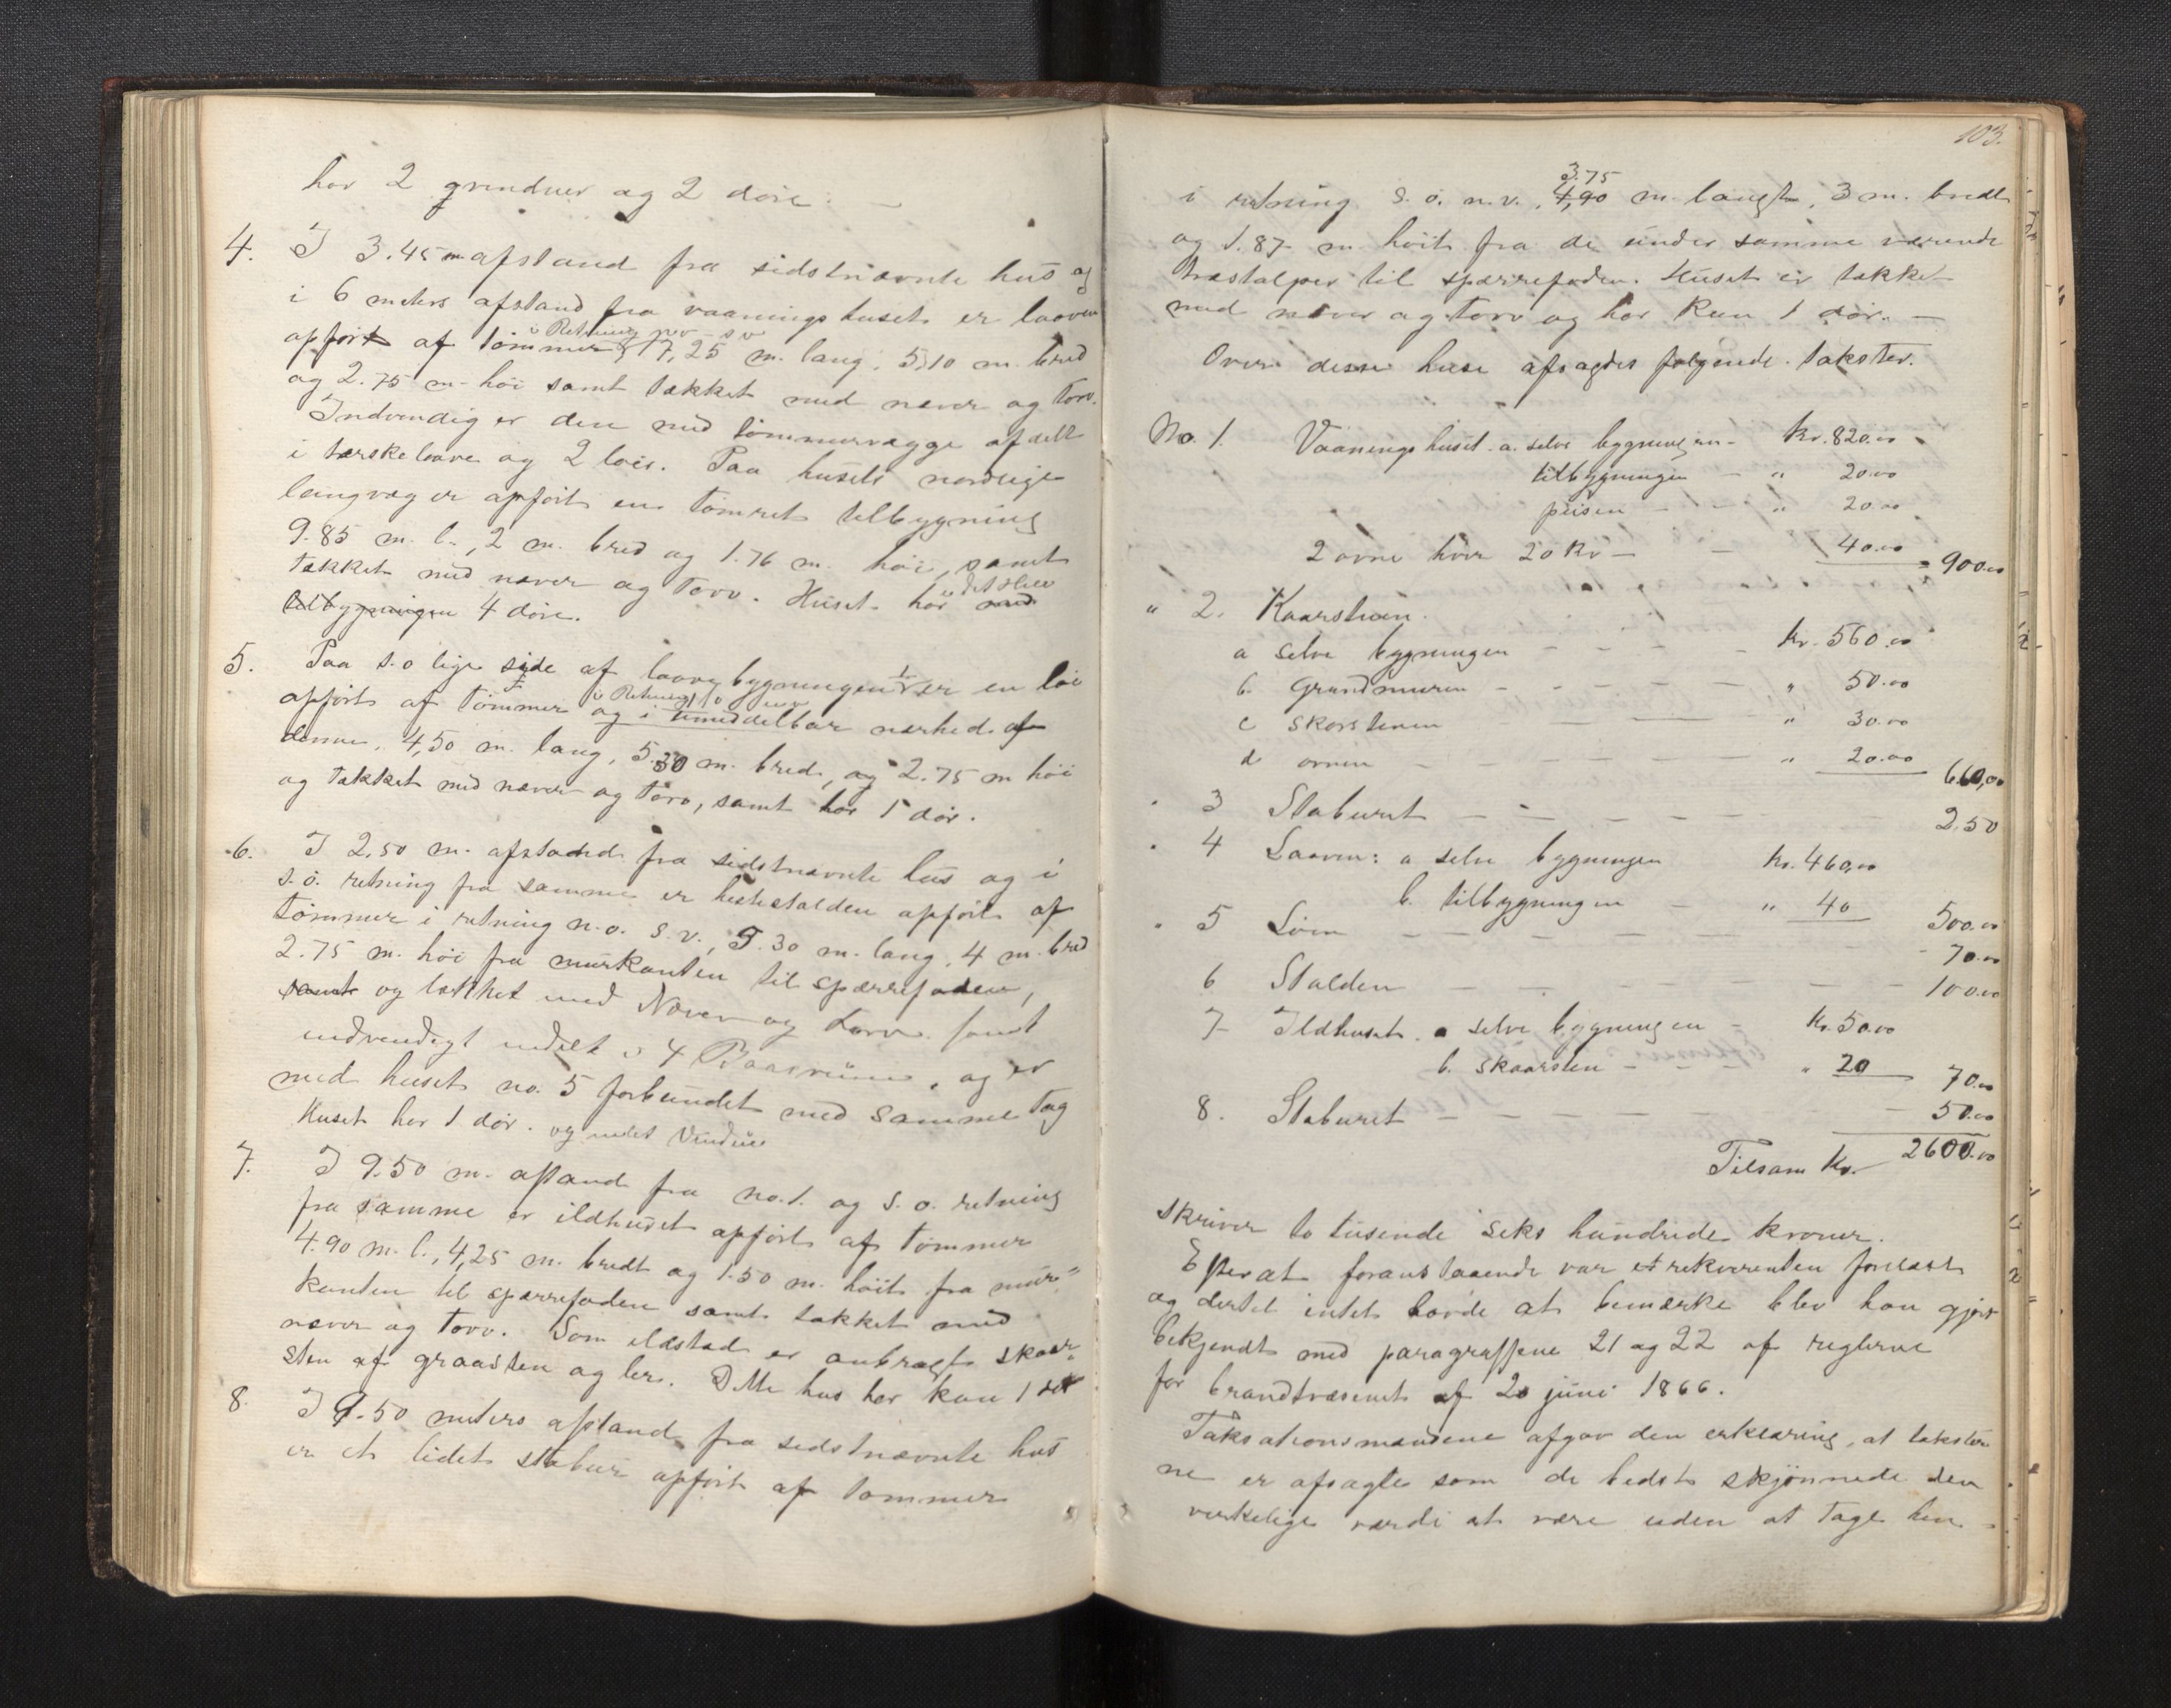 har 2 grinduer og 2 döre. —
4. I 3.45 m afstand fra sidstnævnte hus og
i 6 meters afstand fra vaaningshuset er laaven
opført af tömmer i Retning nv - sv 17,25 m. lang, 5,10 m. bred
og 2.75 m. höi samt tækket med næver og torv.
Indvendig er den med tömmervægge afdelt
i tærskelaave og 2 löer. Paa husets nordlige
langvæg er opført en tömret tilbygning
9.85 m. l., 2 m. bred og 1.76 m. höi, samt
tækket med næver og torv. Huset har i det Hele med
tilbygningen 4 döre.
5. Paa s.o lige side af laavebygningen er en löe
opført af tömmer i Retning og i umiddelbar nærhed af
denne, 4,50 m. lang, 5.30 m. bred, og 2.75 m höi
og tækket med næver og torv, samt har 1 dör.
6. I 2,50 m. afstand fra sidstnævnte hus og i
s.ö. retning fra samme er hestestalden opført af
tömmer i retning n.o. s.v., 9.30 m. lang, 4 m. bred
2.75 m. höi fra murkanten til sperrefoden,
samt og tækket med Næver og torv samt
indvendigt indelt i 4 Baasrum, og er
med huset no. 5 forbundet med samme tag
Huset har 1 dör. og intet Vindue
7. I 9.50 m. afstand fra no. 1. og s. o. retning
fra samme er ildhuset opført af tömmer
4.90 m. l., 4,25 m. bredt og 1.50 m. höit fra mur=
kanten til sperrefoden samt tækket med
næver og torv. Som ildsted er anbragt skaar=
sten af graasten og ler. Dette hus har kun 1 dör
8. I 9.50 meters afstand fra sidstnævnte hus
er et lidet stabur opført af tömmer
103.
i retning s. ö. n.v., 4,90 3.75 m. langt, 3 m. bredt
og 1.87 m. höit fra de under samme værende
træstolper til sperrefoden. Huset er tækket
med næver og torv og har kun 1 dör. —
Over disse huse afsagdes følgende takster.
No. 1. Vaaningshuset. a. selve bygningen - Kr. 820.00
tilbygningen - " 20.00
peisen - - " 20.00
2 ovne hver 20 Kr - - 40.00 = 900.00
" 2. Kaarstuen.
a selve bygningen - - - - Kr. 560.00
b. Grundmuren - - - - - " 50.00
c skorstenen - - - " 30.00
d ovnen - - - - - - " 20.00 660,00
" 3 Staburet - - - - - - 2.50
" 4 Laaven: a selve bygningen Kr. 460,00
b. tilbygningen - " 40 500.00
" 5 Löen - - - - - - - 70.00
6 Stalden - - - - - - 100.00
7 Ildhuset. a selve bygningen - Kr. 50.00
b. skaarsten - - - " 20 70.00
8. Staburet - - - - - - 50.00
Tilsam Kr. 2600.00
skriver to tusende seks hundrede kroner.
Efterat foranstaaende var rekvirenten forelæst
og dertil intet havde at bemærke blev han gjort
bekjendt med paragraffene 21 og 22 af reglerne
for brandtvæsenet af 20 juni 1866.
Taksationsmændene afgav den erklæring, at takster
ne er afsagte som de bedst skjönnede den
virkelige værdi at være uden at tage hen=